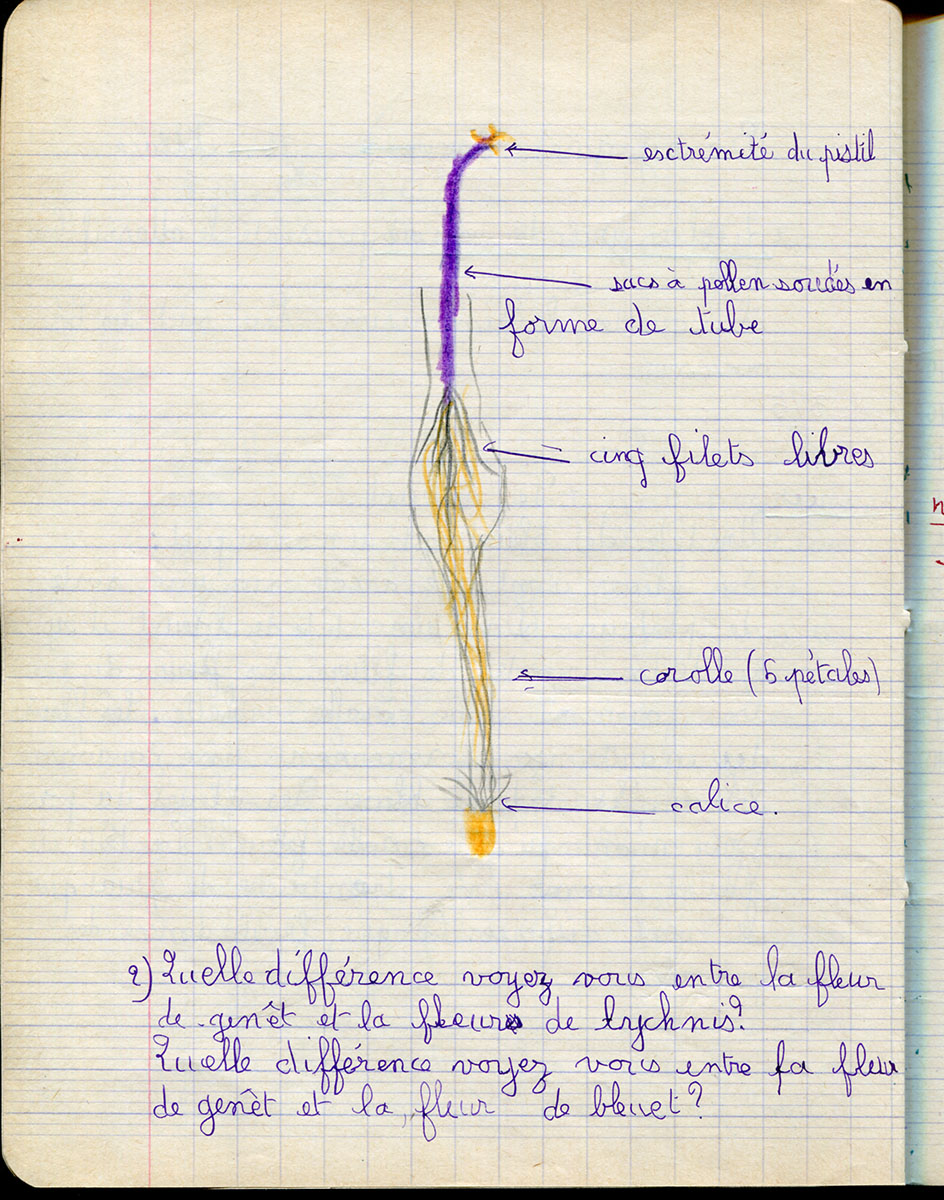 esctrémité du pistil
sacs à pollen soudés en
forme de tube
cinq filets libres
corolle (5 pétales)
calice.
2) Quelle différence voyez vous entre la fleur
de genêt et la fleur de lychnis?
Quelle différence voyez vous entre la fleur
de genêt et la fleur de bleuet?